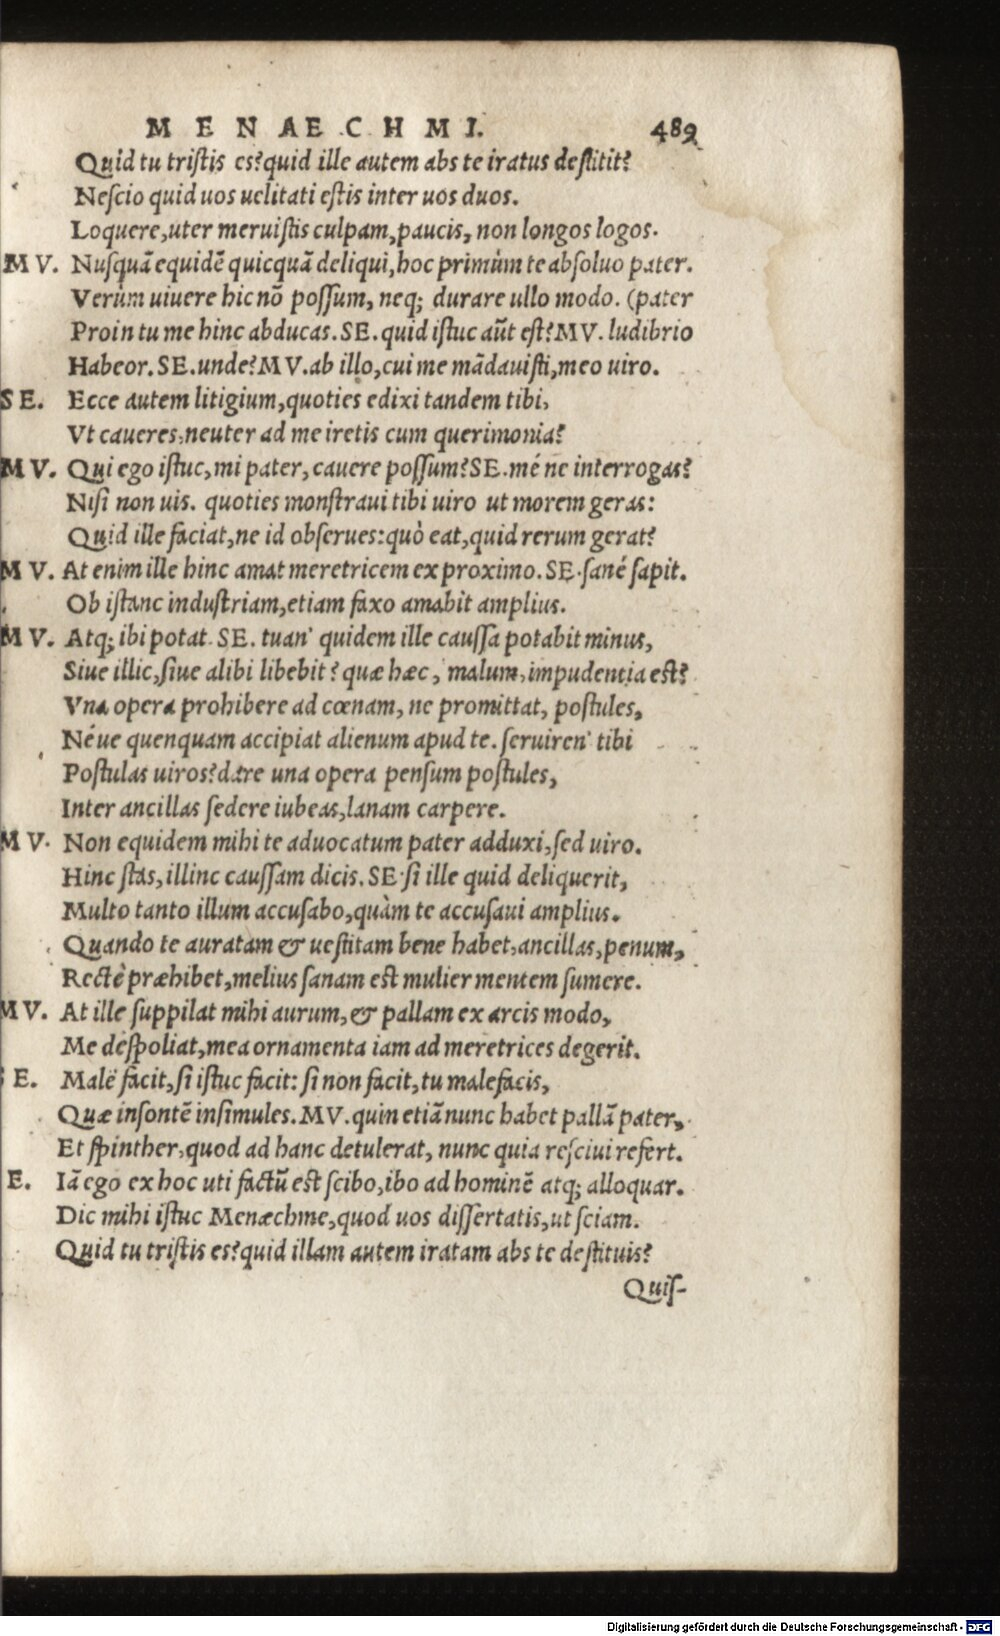 MENAECHMI. 489
Quid tu tristis es?quid ille autem abs te iratus destitit?
Nescio quid uos uelitati estis inter uos duos.
Loquere,uter meruistis culpam,paucis, non longos logos.
MV. Nusquā equidē quicquā deliqui,hoc primùm te absoluo pater.
Verùm uiuere hic nō possum, neq; durare ullo modo. (pater
Proin tu me hinc abducas.SE.quid istuc aūt est?MV. ludibrio
Habeor.SE.unde?MV.ab illo,cui me mādauisti,meo uiro.
SE. Ecce autem litigium,quoties edixi tandem tibi,
Vt caueres,neuter ad me iretis cum querimonia?
MV. Qui ego istuc,mi pater, cauere possum?SE.mé ne interrogas?
Nisi non uis. quoties monstraui tibi uiro ut morem geras:
Quid ille faciat,ne id obserues:quò eat,quid rerum gerat?
MV. At enim ille hinc amat meretricem ex proximo.SE.sané sapit.
Ob istanc industriam,etiam faxo amabit amplius.
MV. Atq; ibi potat. SE. tuan' quidem ille caussa potabit minus,
Siue illic,siue alibi libebit? quæ hæc, malum,impudentia est?
Vna opera prohibere ad cœnam, ne promittat, postules,
Néue quenquam accipiat alienum apud te. seruiren' tibi
Postulas uiros?dare una opera pensum postules,
Inter ancillas sedere iubeas,lanam carpere.
MV. Non equidem mihi te aduocatum pater adduxi,sed uiro.
Hinc stas,illinc caussam dicis.SE.si ille quid deliquerit,
Multo tanto illum accusabo,quàm te accusaui amplius.
Quando te auratam & uestitam bene habet,ancillas,penum,
Rectè præhibet,melius sanam est mulier mentem sumere.
MV. At ille suppilat mihi aurum,& pallam ex arcis modo,
Me despoliat,mea ornamenta iam ad meretrices degerit.
SE. Malè facit,si istuc facit: si non facit,tu malefacis,
Quæ insontē insimules.MV.quin etiā nunc habet pallā pater,
Et spinther,quod ad hanc detulerat, nunc quia resciui refert.
E. Iā ego ex hoc uti factū est scibo,ibo ad hominē atq; alloquar.
Dic mihi istuc Menæchme,quod uos dissertatis,ut sciam.
Quid tu tristis es?quid illam autem iratam abs te destituis?
Quis-
Digitalisierung gefördert durch die Deutsche Forschungsgemeinschaft - DFG